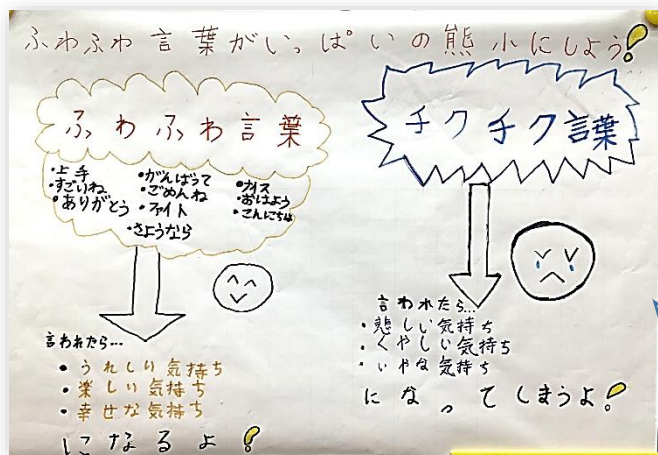 ふわふわ言葉がいっぱいの熊小にしよう!
ふわふわ言葉
・上手
・すごいね
・ありがとう
・がんばって
・ごめんね
・ファイト
・さようなら
・ナイス
・おはよう
・こんにちは
言われたら…
・うれしい気持ち
・楽しい気持ち
・幸せな気持ち
になるよ!
チクチク言葉
言われたら…
・悲しい気持ち
・くやしい気持ち
・いやな気持ち
になってしまうよ!